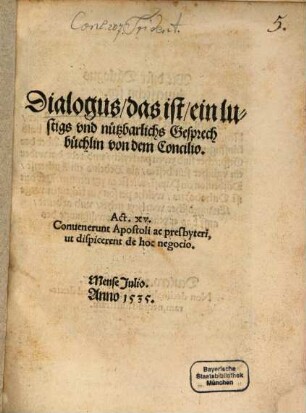 Conc. Trident.
5.
Dialogus/das ist/ein lu-
stigs vnd nützbarlichs Gesprech
büchlin von dem Concilio.
Act. xv.
Conuenerunt Apostoli ac presbyteri,
ut dispicerent de hoc negocio.
Mense Julio.
Anno 1535.
Bayerische
Staatsbibliothek
München